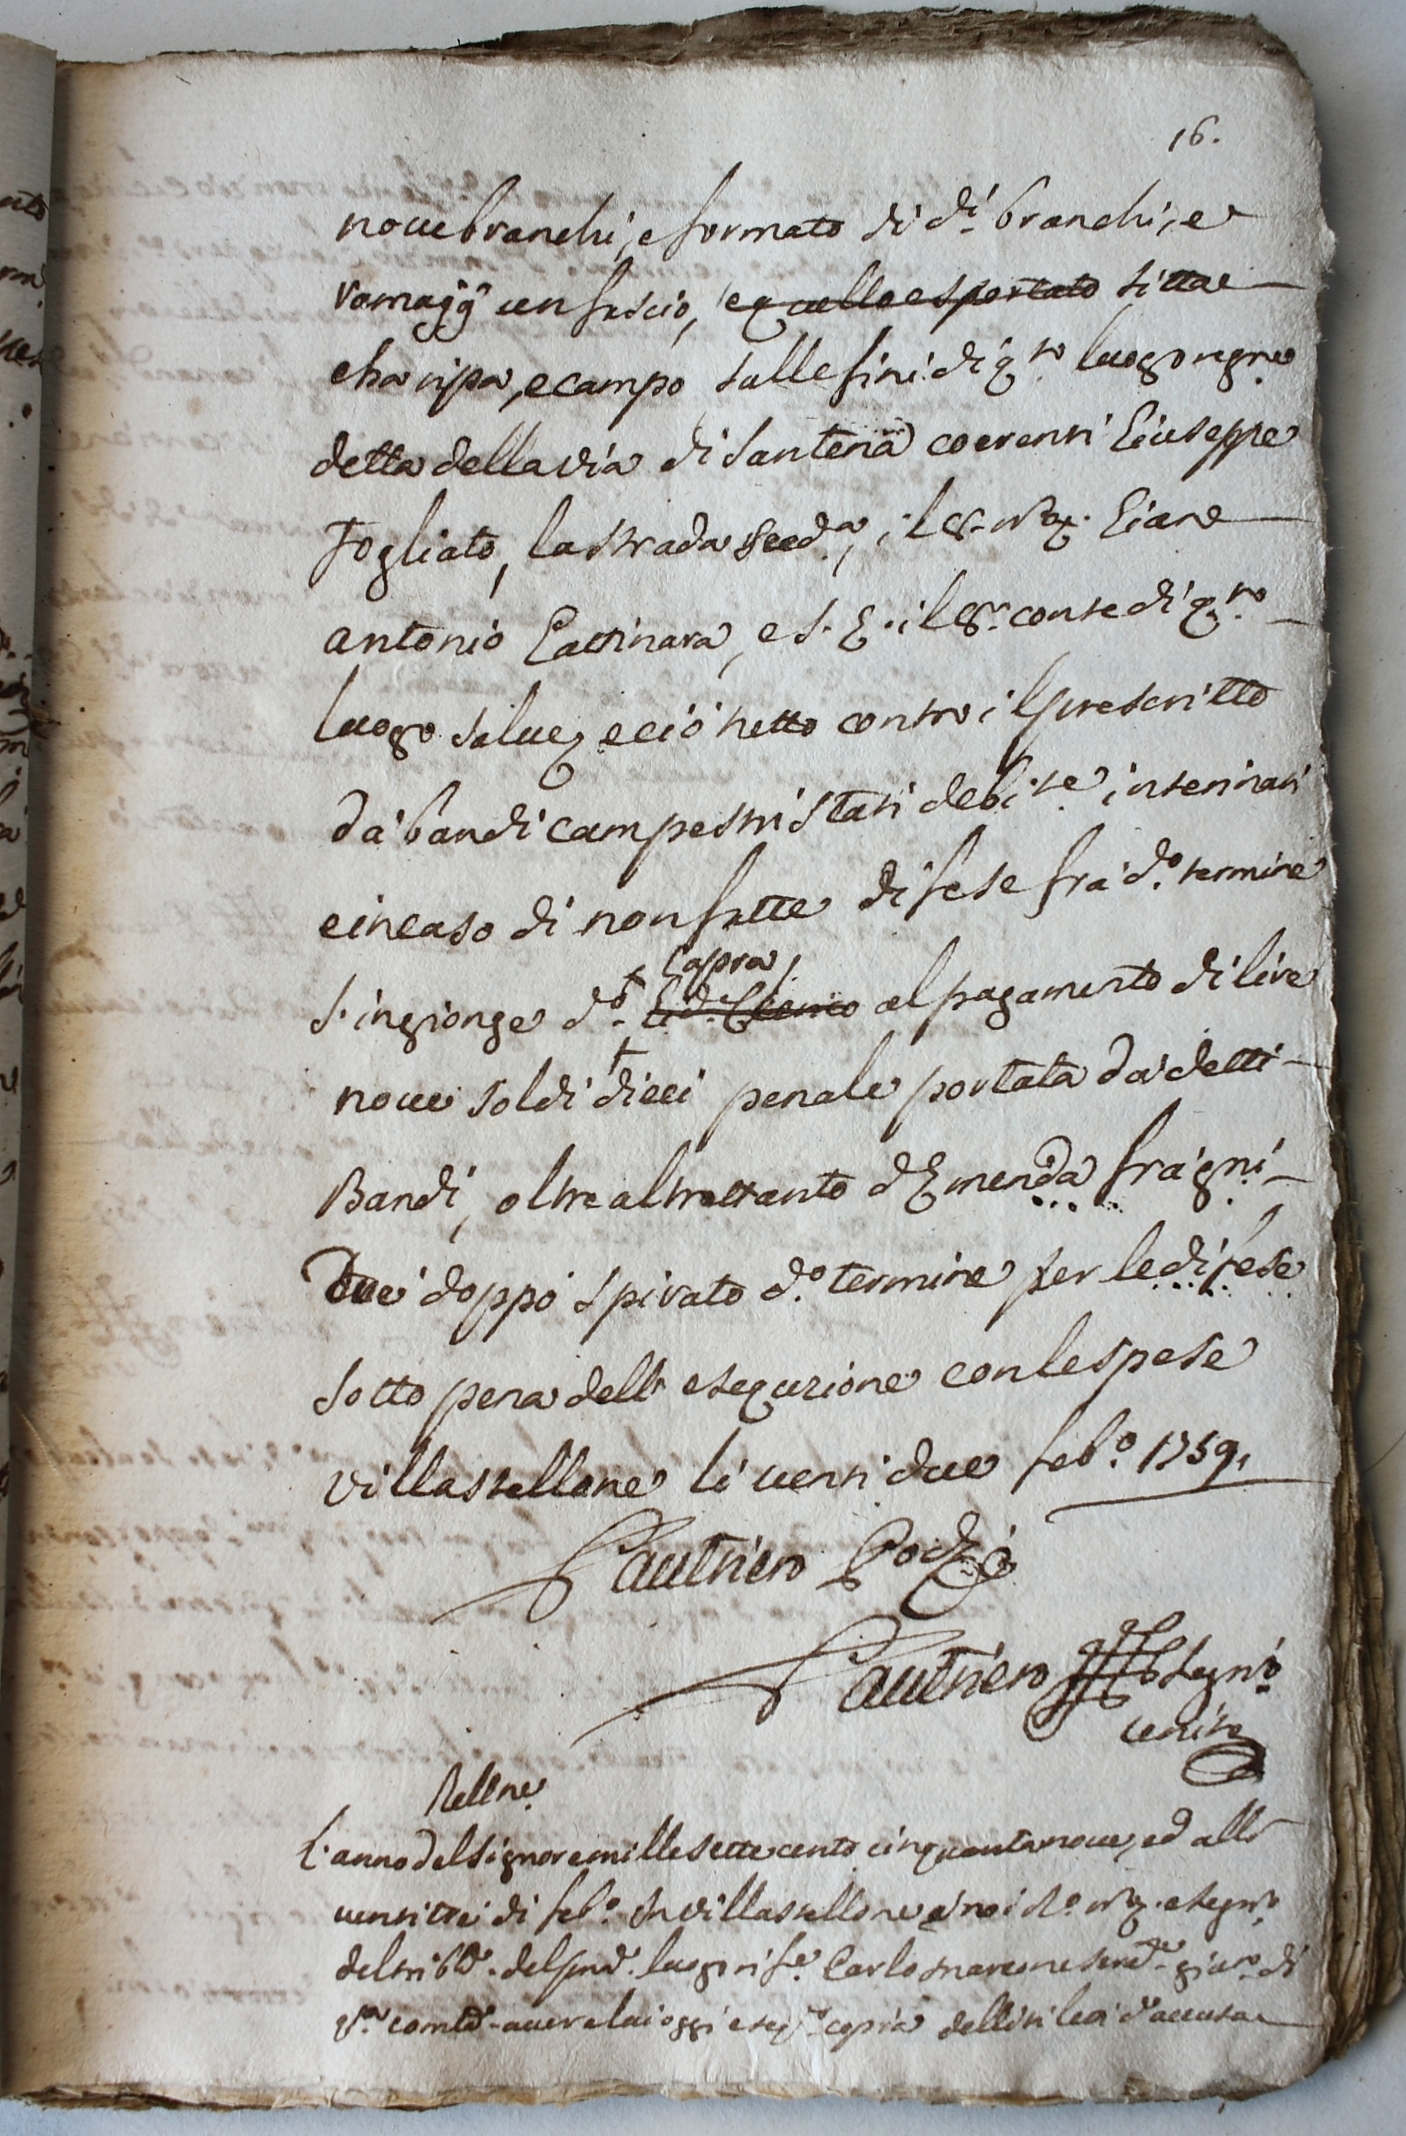 16.
noue branchi, e formato di d.i branchi, e
ramagg.i un fascio, e quello esportato sittae
cha ripa, e campo sulle fini di q.to luogo regne
detta della via di Santena coerenti Giuseppe
Fogliato, la strada sud.a, il Sr. Not. Gian
antonio Gattinara, e S. E. il Sr. conte di q.to
luogo salue, e ciò tutto contro il prescritto
da bandi campestri stati debi.te interinati
e in caso di non fatte difese fra d.o termine
Capra
s'ingionge d.o al pagamento di lire
noue soldi dieci penale portata da detti
Bandi, oltre altrettanto d'Emenda fra gni
due doppo spirato d.o termine per le difese
sotto pena dell' esequzione con le spese
villastellone li uenti due feb.o 1759,
Gautiero Pod.
Gautiero Segr.o
Rell.ne
L'anno del Signore mille sette cento cinquanta noue, ed alli
uentitre di feb.o In villastellone a noi not. e segr.o
del trib.le del pnd. luogo rif.e Carlo marone seru.e giur.o di
q.ta com.tà auere lui oggi eseq. copia delli di lei d'accusa